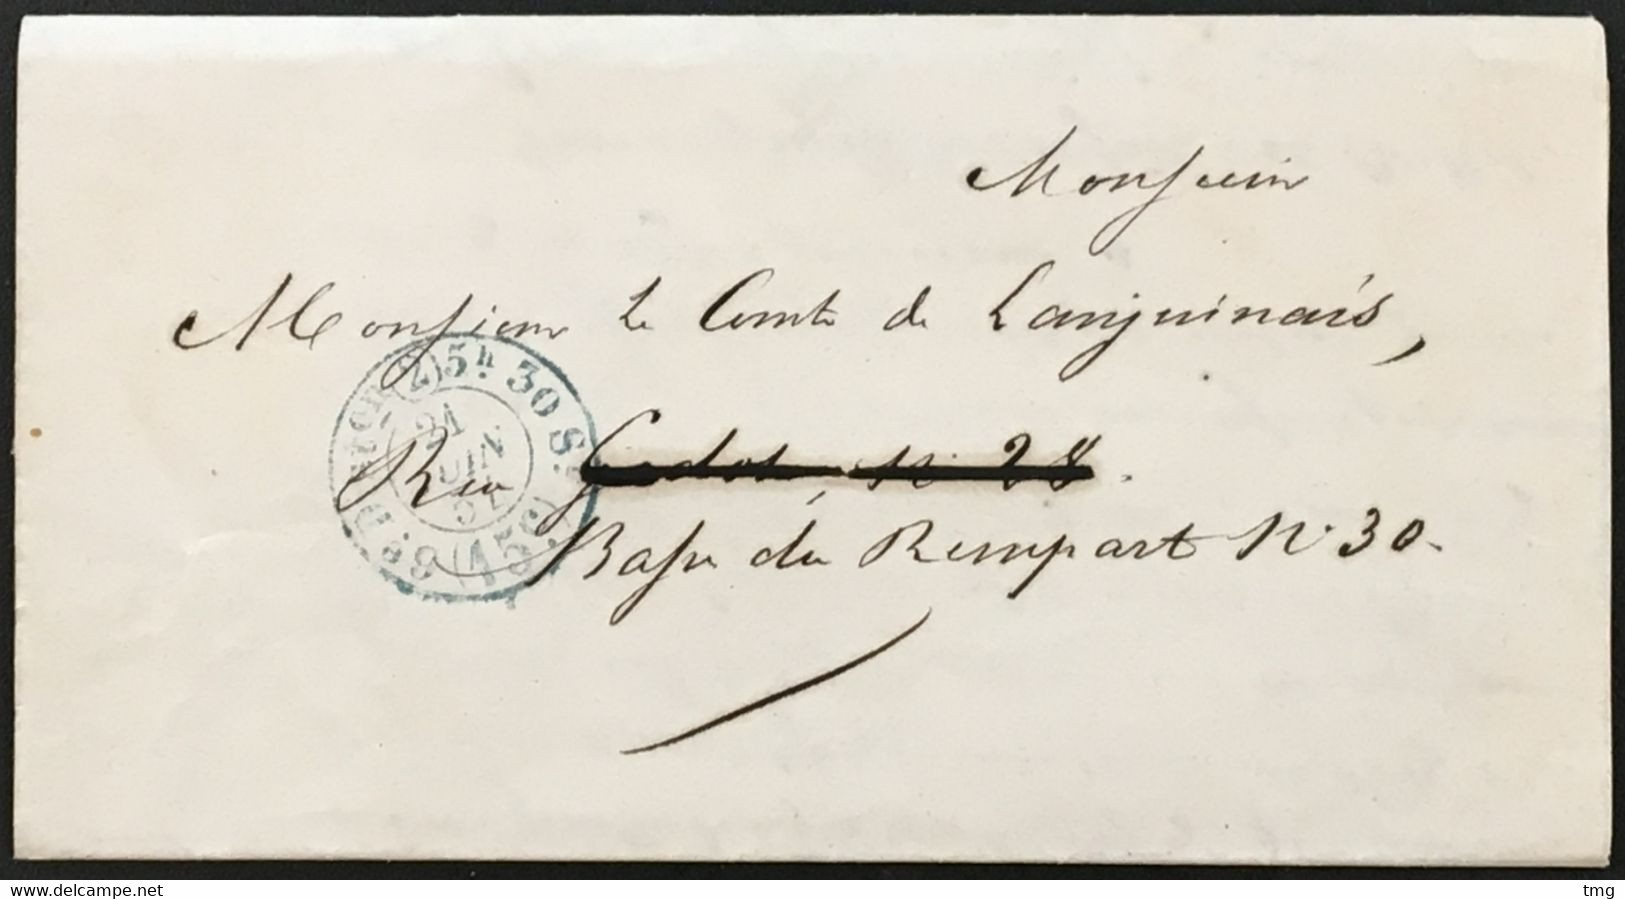 Monsieur
Monsieur le Comte de Lanjuinais,
Rue Godot, N. 28.
Basse du Rempart N. 30.
(2) 5h. 30 S.
21
JUIN
(15C)
delcampe.net
tmg